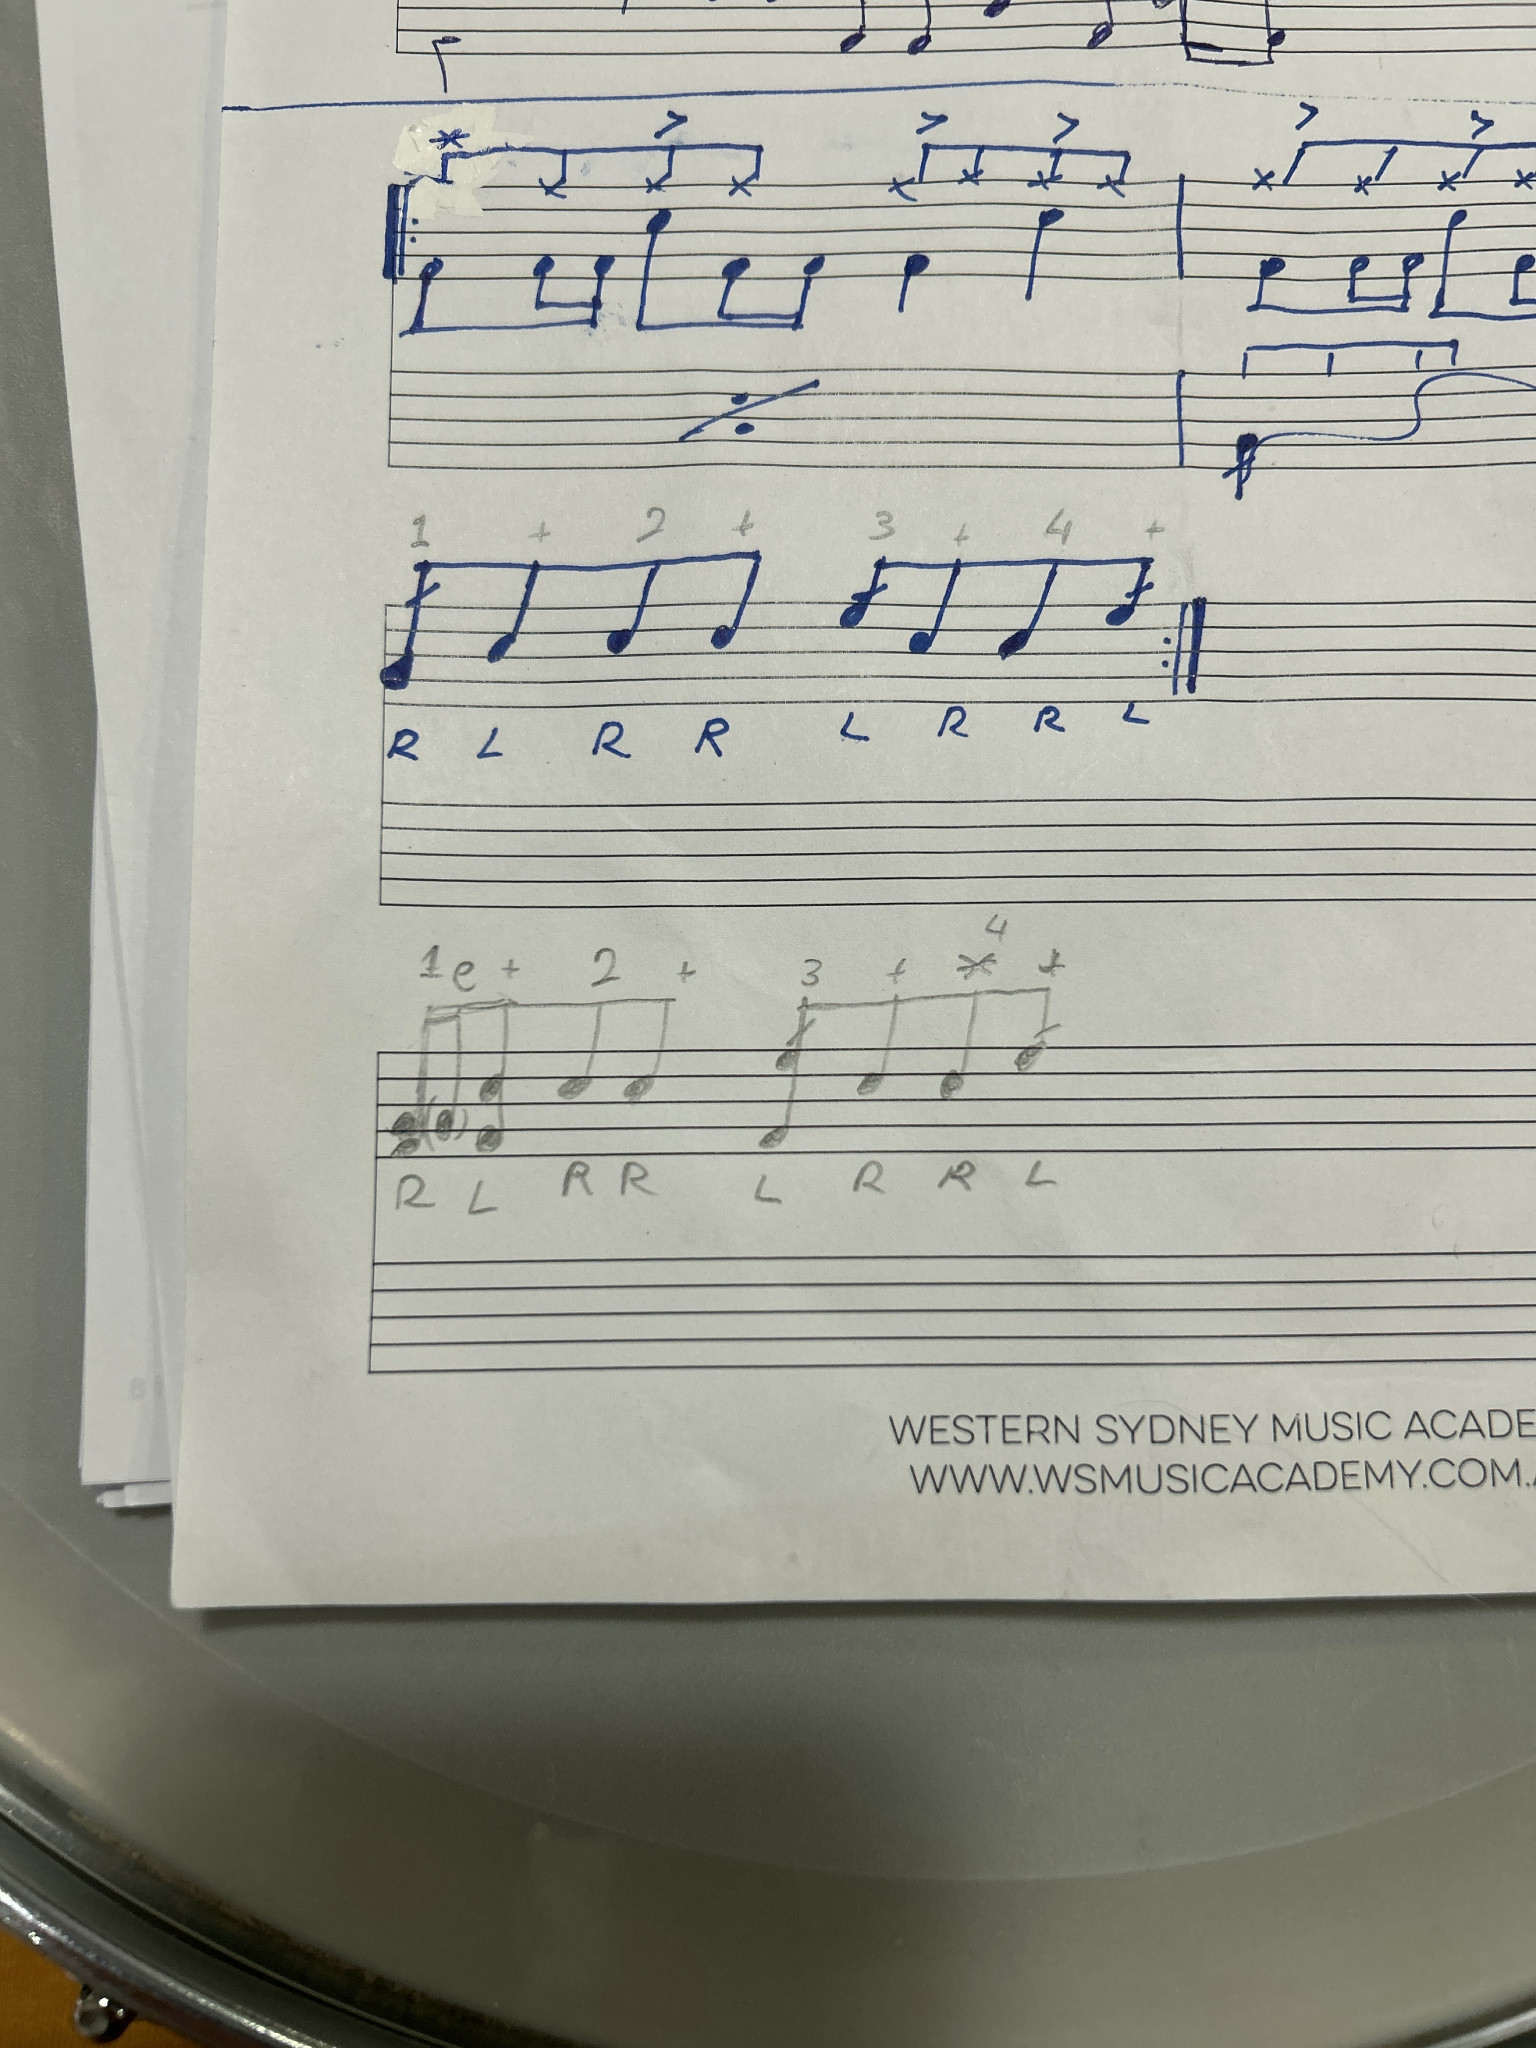 1 + 2 + 3 + 4 +
R L R R L R R L
4
1 e + 2 + 3 + +
R L R R L R R L
WESTERN SYDNEY MUSIC ACADE
WWW.WSMUSICACADEMY.COM.